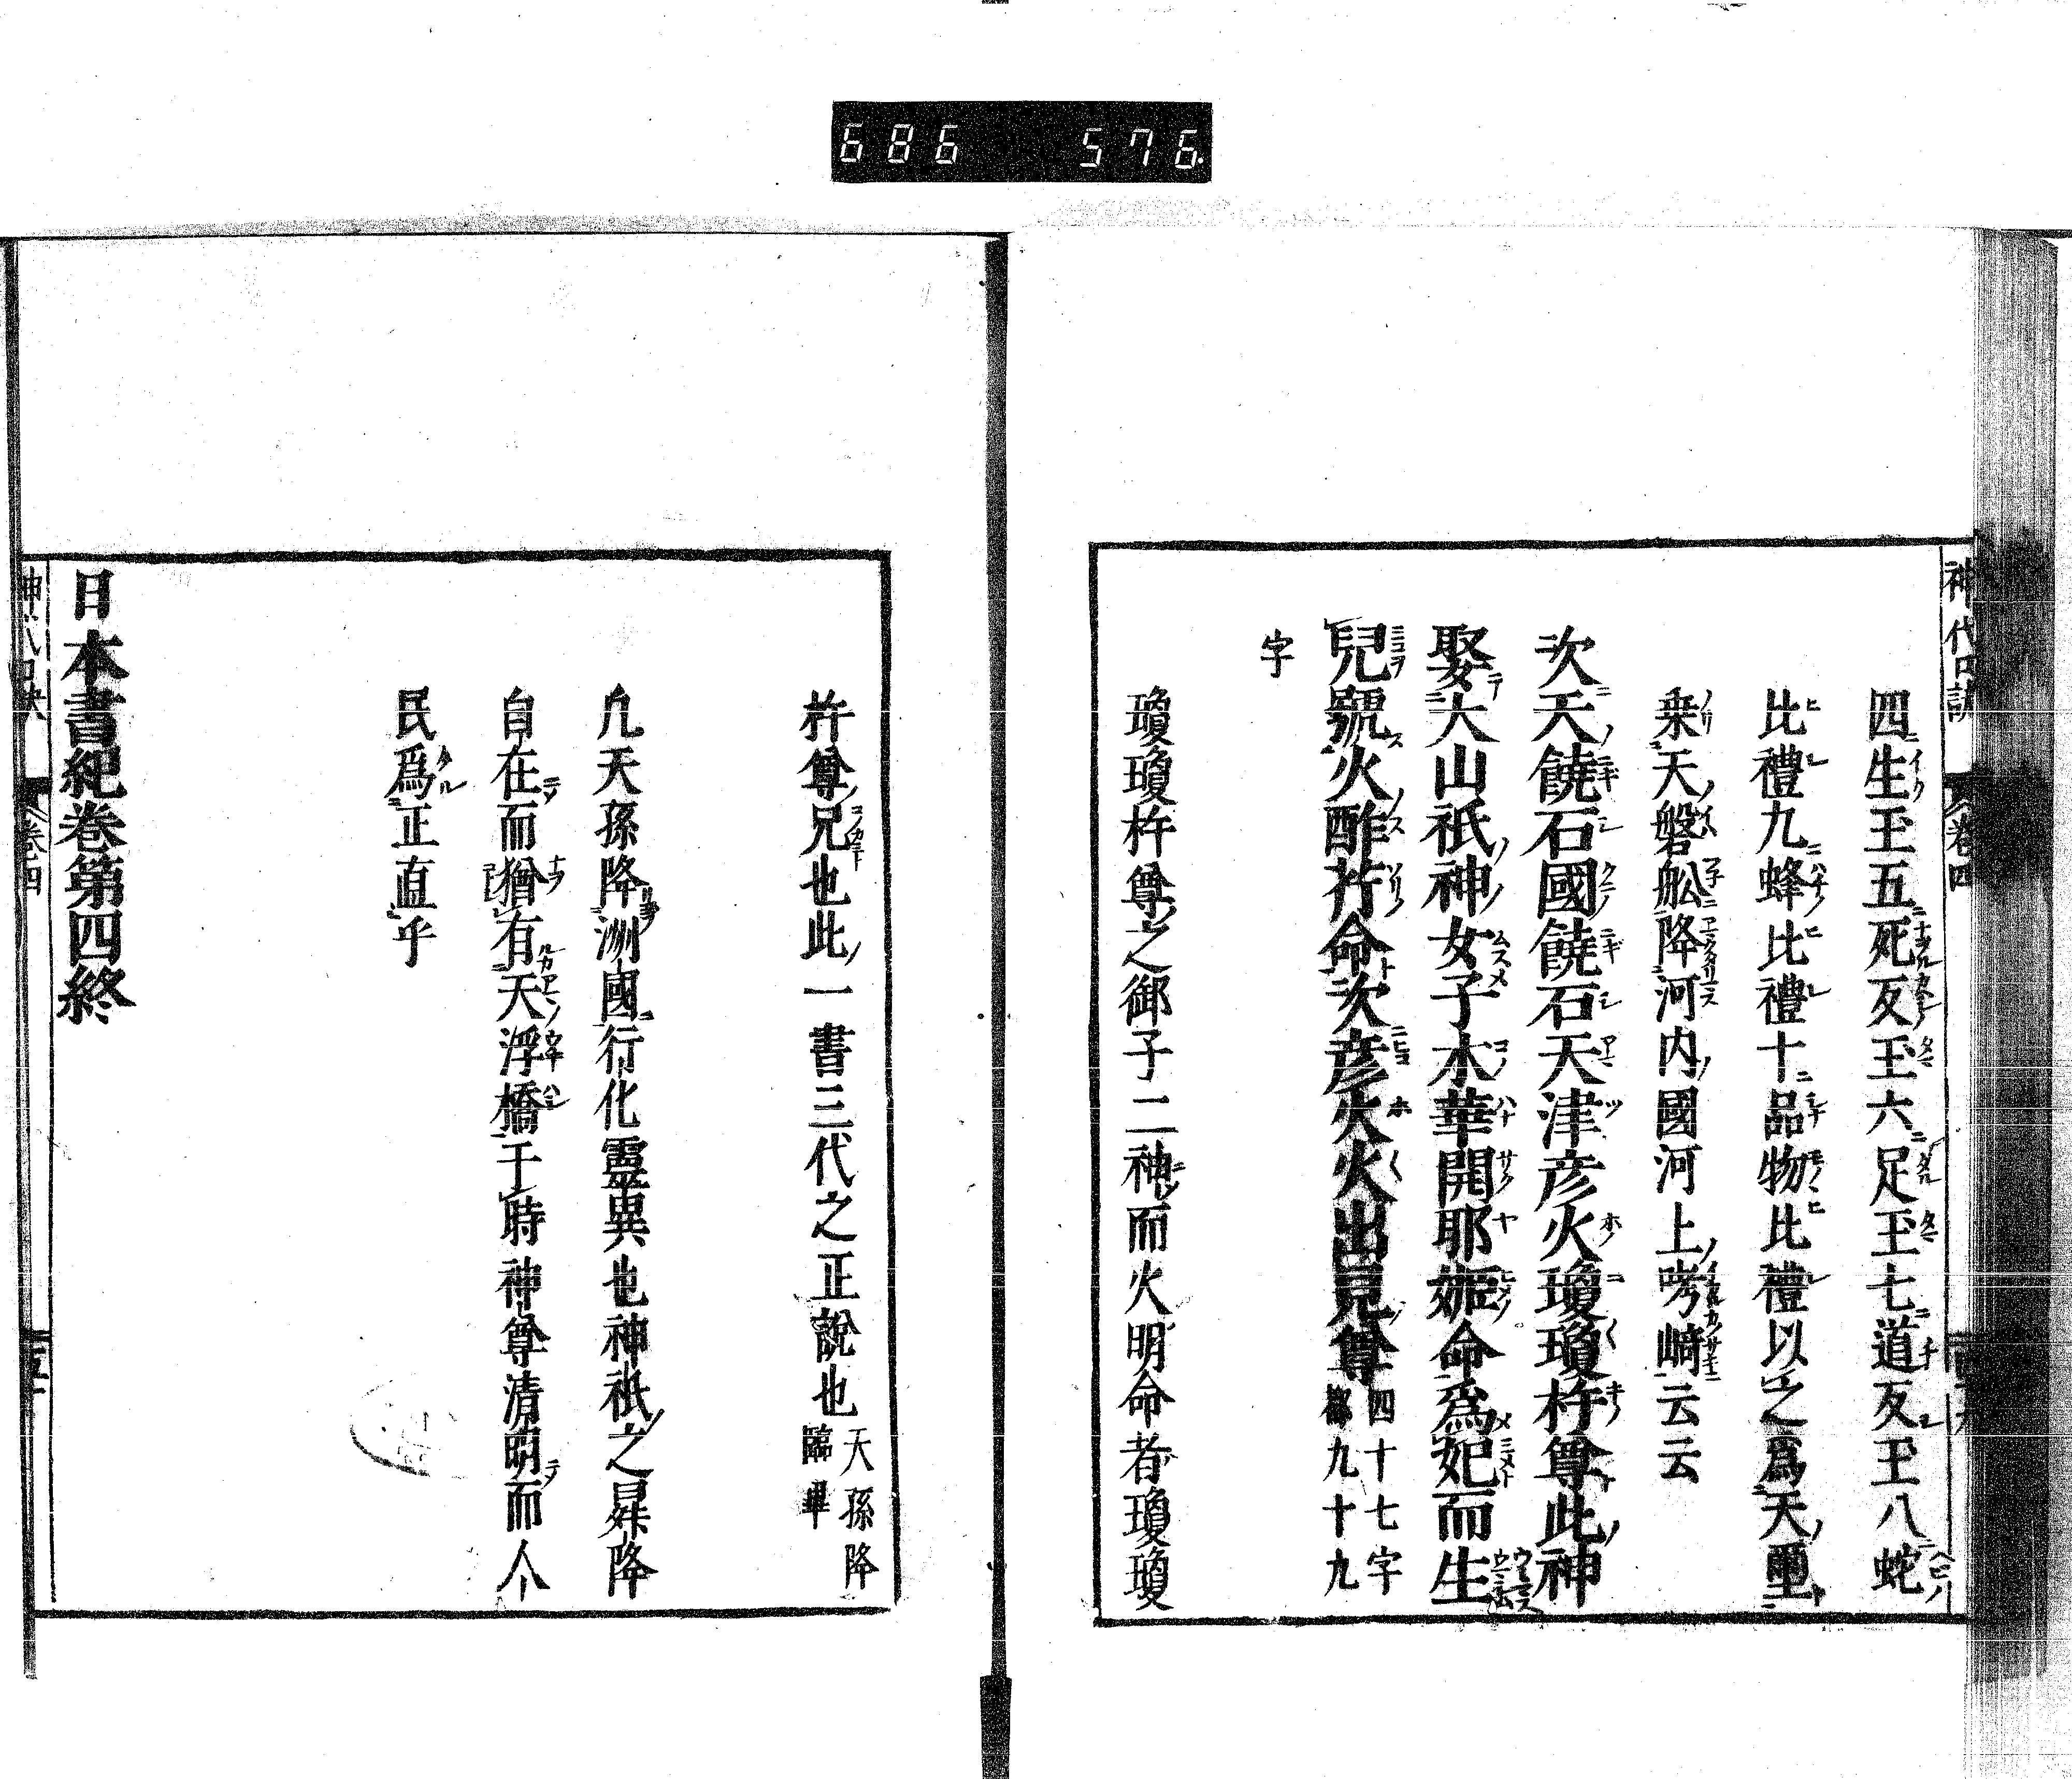 686 576
神代口訣 巻四
四生玉五死反玉六足玉七道反玉八蛇
比禮九蜂比禮十品物比禮以之爲天璽
乗天磐舩降河内國河上哮峰云云
次天饒石國饒石天津彦火瓊瓊杵尊此神
娶大山祇神女子木華開耶姫命爲妃而生
兒號火酢芹命次彦火火出見尊四十七字
九十九
字
瓊瓊杵尊之御子二神而火明命者瓊瓊
杵尊兄也此一書三代之正說也天孫降
臨畢
凡天孫降洲國行化靈異也神祇之昇降
自在而猶有天浮橋于時神尊清明而人
民爲正直乎
日本書紀巻第四終
巻四